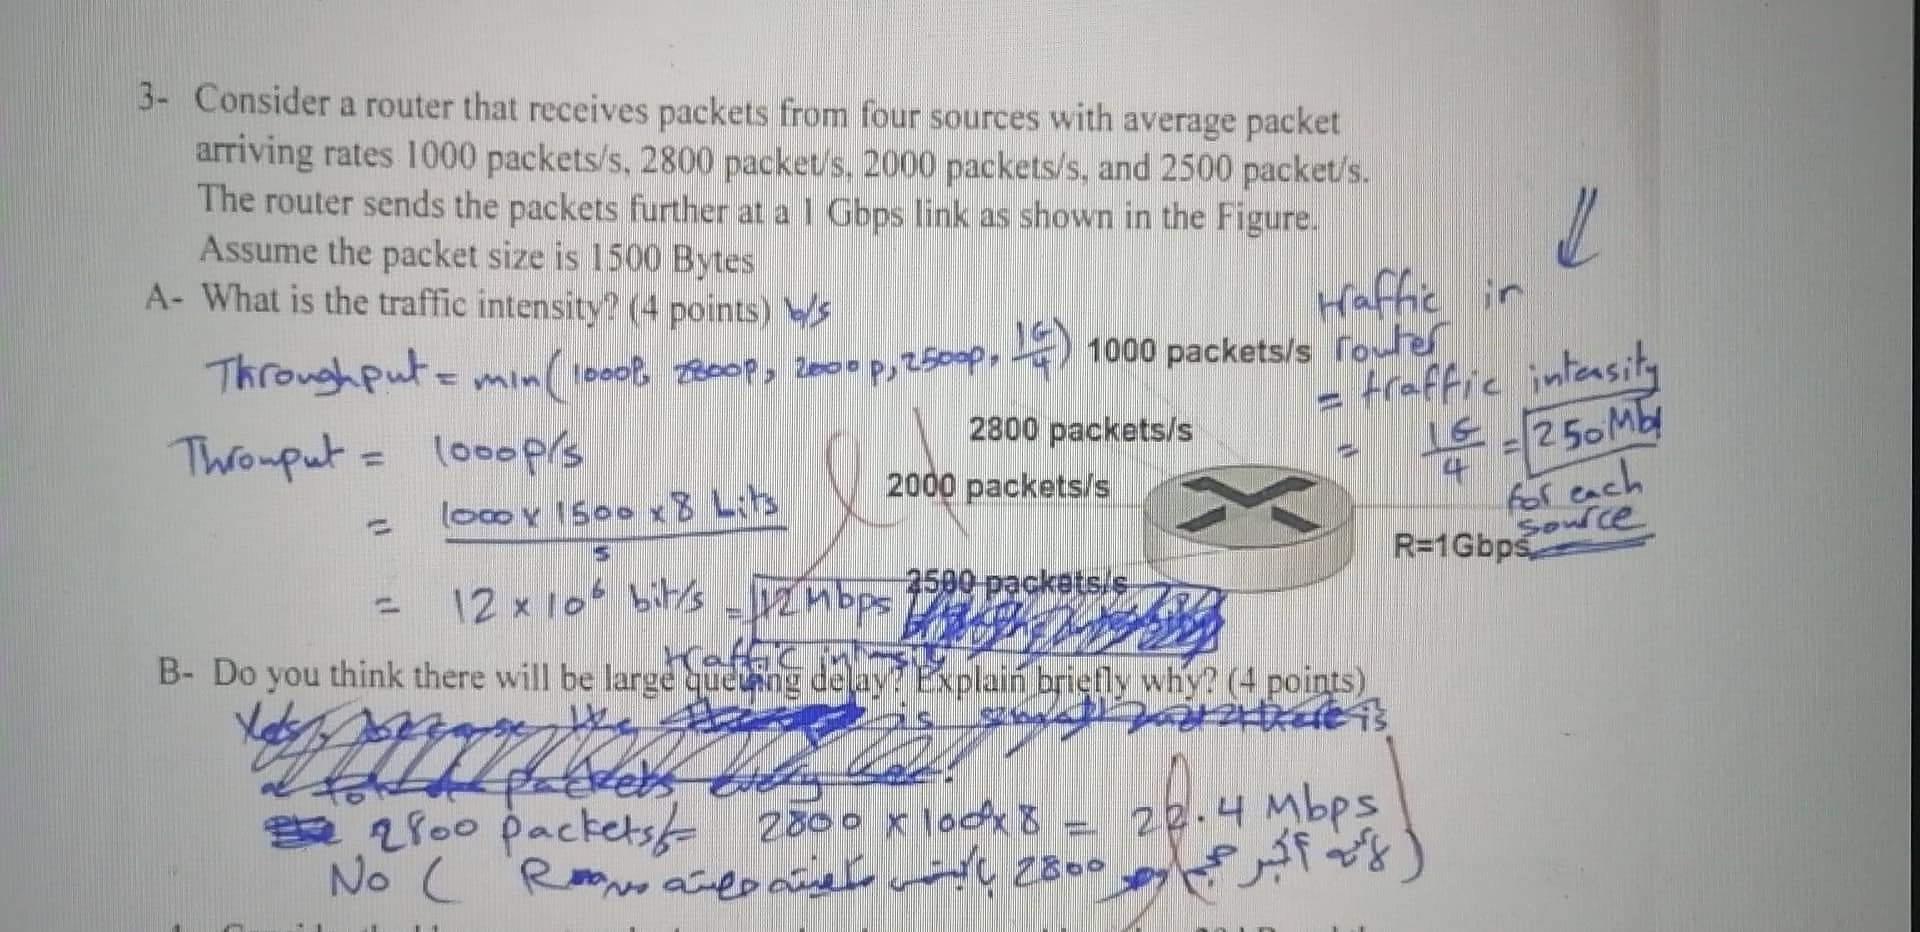 3- Consider a router that receives packets from four sources with average packet
arriving rates 1000 packets/s, 2800 packet/s, 2000 packets/s, and 2500 packet/s.
The router sends the packets further at a 1 Gbps link as shown in the Figure.
Assume the packet size is 1500 Bytes
A- What is the traffic intensity? (4 points) b/s
Throughput = min(1000p, 2800p, 2000p, 2500p, 1G/4)
1000 packets/s
traffic in
router
= traffic intensity
= 1G/4 = 250 Mb
for each
source
Throuput = 1000p/s
2800 packets/s
2000 packets/s
= 1000 x 1500 x 8 bits
s
R=1Gbps
= 12 x 10⁶ bit/s = 12 Mbps
2500 packets/s
traffic intensity
B- Do you think there will be large queuing delay? Explain briefly why? (4 points)
Yes, because the is
is
packets
2800 packets/s = 2800 x 100x8 = 22.4 Mbps
No ( R 2800 أكبر )